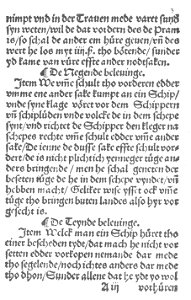 nimpt vnd in der Trauen mede varet sunst
syn vreten / wil he dat vorderen des de Pram
is / so schal he ander en hüre geuen / vñ des
wert he los myt iiij. ß. tho hörende / sunder
yd kame van vüre effte ander nodtsaken.
¶ De Negende beleuinge.
Item Wevñe schult tho vorderen edder
vmme ene ander sake kumpt an ein Schip /
vnde syne klage vöret vor dem Schippern
vñ schiplüden vnde volcke de in dem schepe
synt / vnde richtet de Schipper den kleger mit
schepes rechte vmme schult edder ene ander
sake / de nemme de dusse sake effte schult vor
derē / de is nicht plichtich yenneger tüge an
ders bringende / men he schal geneten der
besetten tüge de he in dem schepe vunden / vñ
hebben macht / Geliker wise yfft ock vmme
tüge tho bringen buten landes also hyr vor
gesecht is.
¶ De Teynde beleuinge.
Item Welck man ein Schip hüret tho
einer bescheden tyde / dat mach he nicht vor
setten edder vorkopen nemande dar mede
tho segelende / noch ichtes anders dar mede
tho dhon / Sunder allene dat he yd yo wol
A ij vorhüren